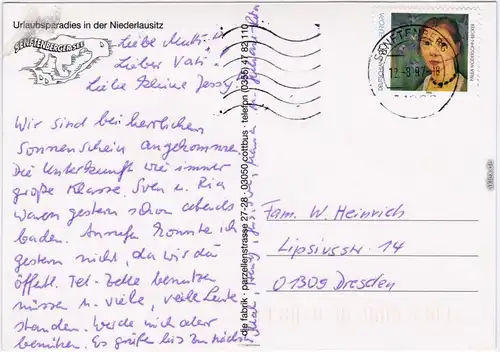 Urlaubsparadies in der Niederlausitz
SENFTENBERGER SEE
Liebe Mutti!
Lieber Vati!
Liebe kleine Jessy!
Wir sind bei herrlichen
Sonnenschein angekommen.
Die Unterkunft wie immer
große Klasse. Sven u. Ria
waren gestern schon abends
baden. Anrufen konnte ich
gestern nicht, da wir da
öffentl. Tel-Zelle benutzen
müssen u. viele, viele Leute
standen. Werde mich aber
bemühen. Es grüßen bis zum nächsten
die fabrik · parzellenstrasse 27-28 · 03050 cottbus · telefon (0355) 47 82 110
SENFTENBERG
12.-8.97-18
DEUTSCHLAND
EUROPA
PAULA MODERSOHN-BECKER
Fam. W. Heinrich
Lipsiusstr. 14
01309 Dresden